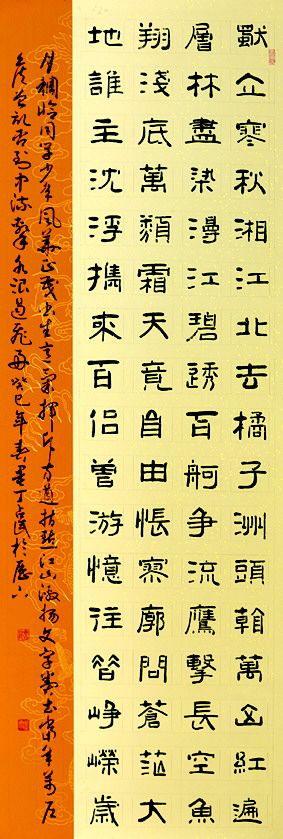 獨立寒秋湘江北去橘子洲頭看萬山紅遍
層林盡染漫江碧透百舸爭流鷹擊長空魚
翔淺底萬類霜天競自由悵寥廓問蒼茫大
地誰主沈浮攜來百侶曾游憶往昔崢嶸歲
月稠恰同學少年風華正茂書生意氣揮斥方遒指點江山激揚文字糞土當年萬戶
侯曾記否到中流擊水浪遏飛舟癸巳年春